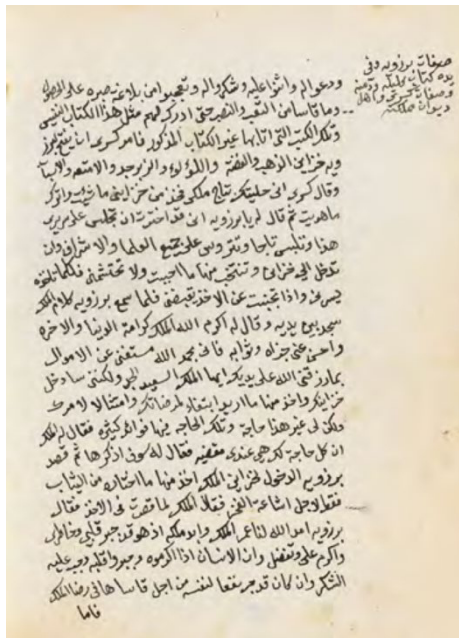 صفات برزويه وفي
يده كتاب كليله ودمنه
وصفات كسرى واهل
ديوان مملكته
ودعوا له واثنوا عليه وشكروا له وتعجبوا من بلاغة صبره على الحصول
وما قاسا من التعب والنصب حتى ادرك فهم مثل هذا الكتاب النفيس
وتلك الكتب التي اتا بها غير الكتاب المذكور فامر كسرى ان يفتح لبرز
ويه خزاين الذهب والفضه واللؤلؤ والزبرجد والامتعه
وقال كسرى اني حليتك بتاج ملكي فخذ من خزايني ما شئت واترك
ما هويت ثم قال له يا برزويه اني قد اخترت ان تجلس على سريري
هذا وتلبس تاجا وتتروس على جميع العلما والاشراف وان
تدخل الى خزاين وتنتخب منها ما احببت ولا تحتشمني فكلما تاخذه
يسرني واذا تجنبت عن الاخذ تقبضني فلما سمع برزويه كلام الملك
سجد بين يديه وقال له اكرم الله الملك كرامة الدنيا والاخره
واحسن عني جزاه وثوابه فاني بحمد الله مستغني عن الاموال
بما رزقني الله على يديك ايها الملك السعيد ولكنني سادخل
خزاينك واخذ منها ما اريد ابتغاء لمرضاتك وامتثالا لامرك
ولكن لي غير هذا حاجة وتلك الحاجه فيها فوايد كثيره فقال له الملك
ان كل حاجه لك هي عندي مقضيه فقال له سوف اذكرها ثم قصد
برزويه الدخول لخزاين الملك اخذ منها ما اختار من الثياب
فقط لاجل اشاعة الفخر فقال الملك لما قصرت في الاخذ فقال
برزويه امد الله لنا عمر الملك وادام ملكه اذ هو قد جبر قلبي وخاطري
واكرم علي وتفضل وان الانسان اذا اكرموه وجبروا قلبه وجب عليه
الشكر وان كان قد جر نفعا لنفسه من اجل قاساها في رضا الملك
فاما